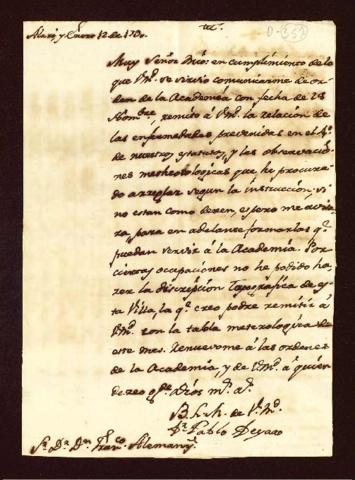 D-353
y Enero 12 de 1790.
Muy Señor Mio: en cumplimiento de lo
que Vm. se sirvio comunicarme de or-
den de la Academia con fecha de 28
Nombre, remito á Vm. la relacion de
las enfermedades prevenidas en el
de nuestros estatutos, y las observacio-
nes metheorologicas que he procura-
do arreglar segun la instruccion; si
no estan como deven, espero me avi
para en adelante formarlas q.
puedan servir á la Academia. Por
ocupaciones no he podido ha-
zer la discripcion Topografica de es-
ta Villa, la q. creo podre remitir á
Vm. con la tabla meterologica de
este mes. Renuevome á las ordenes
de la Academia, y de Vm. á quien
deseo q. Dios m. a.
B. L. M. de Vm.
Dr. Pablo
Sr. Dr. Dn. Franco. Alemany